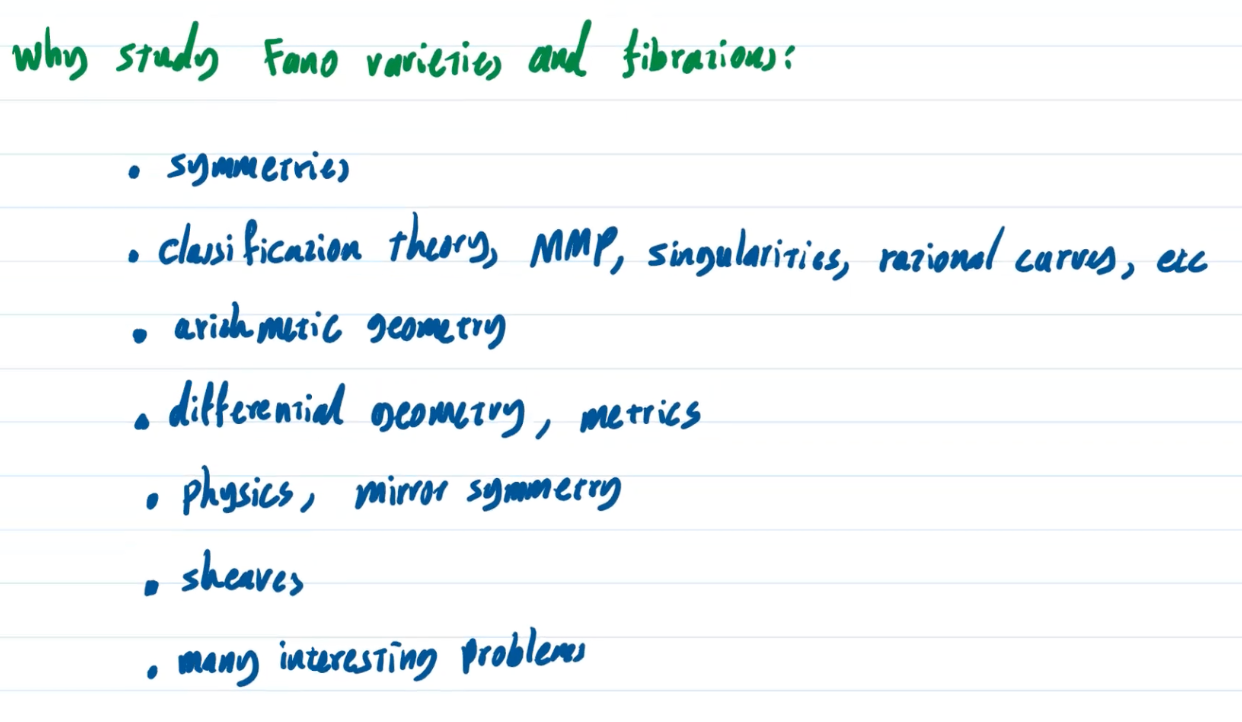 Why study Fano varieties and fibrations:
• symmetries
• classification theory, MMP, singularities, rational curves, etc
• arithmetic geometry
• differential geometry, metrics
• physics, mirror symmetry
• sheaves
• many interesting problems